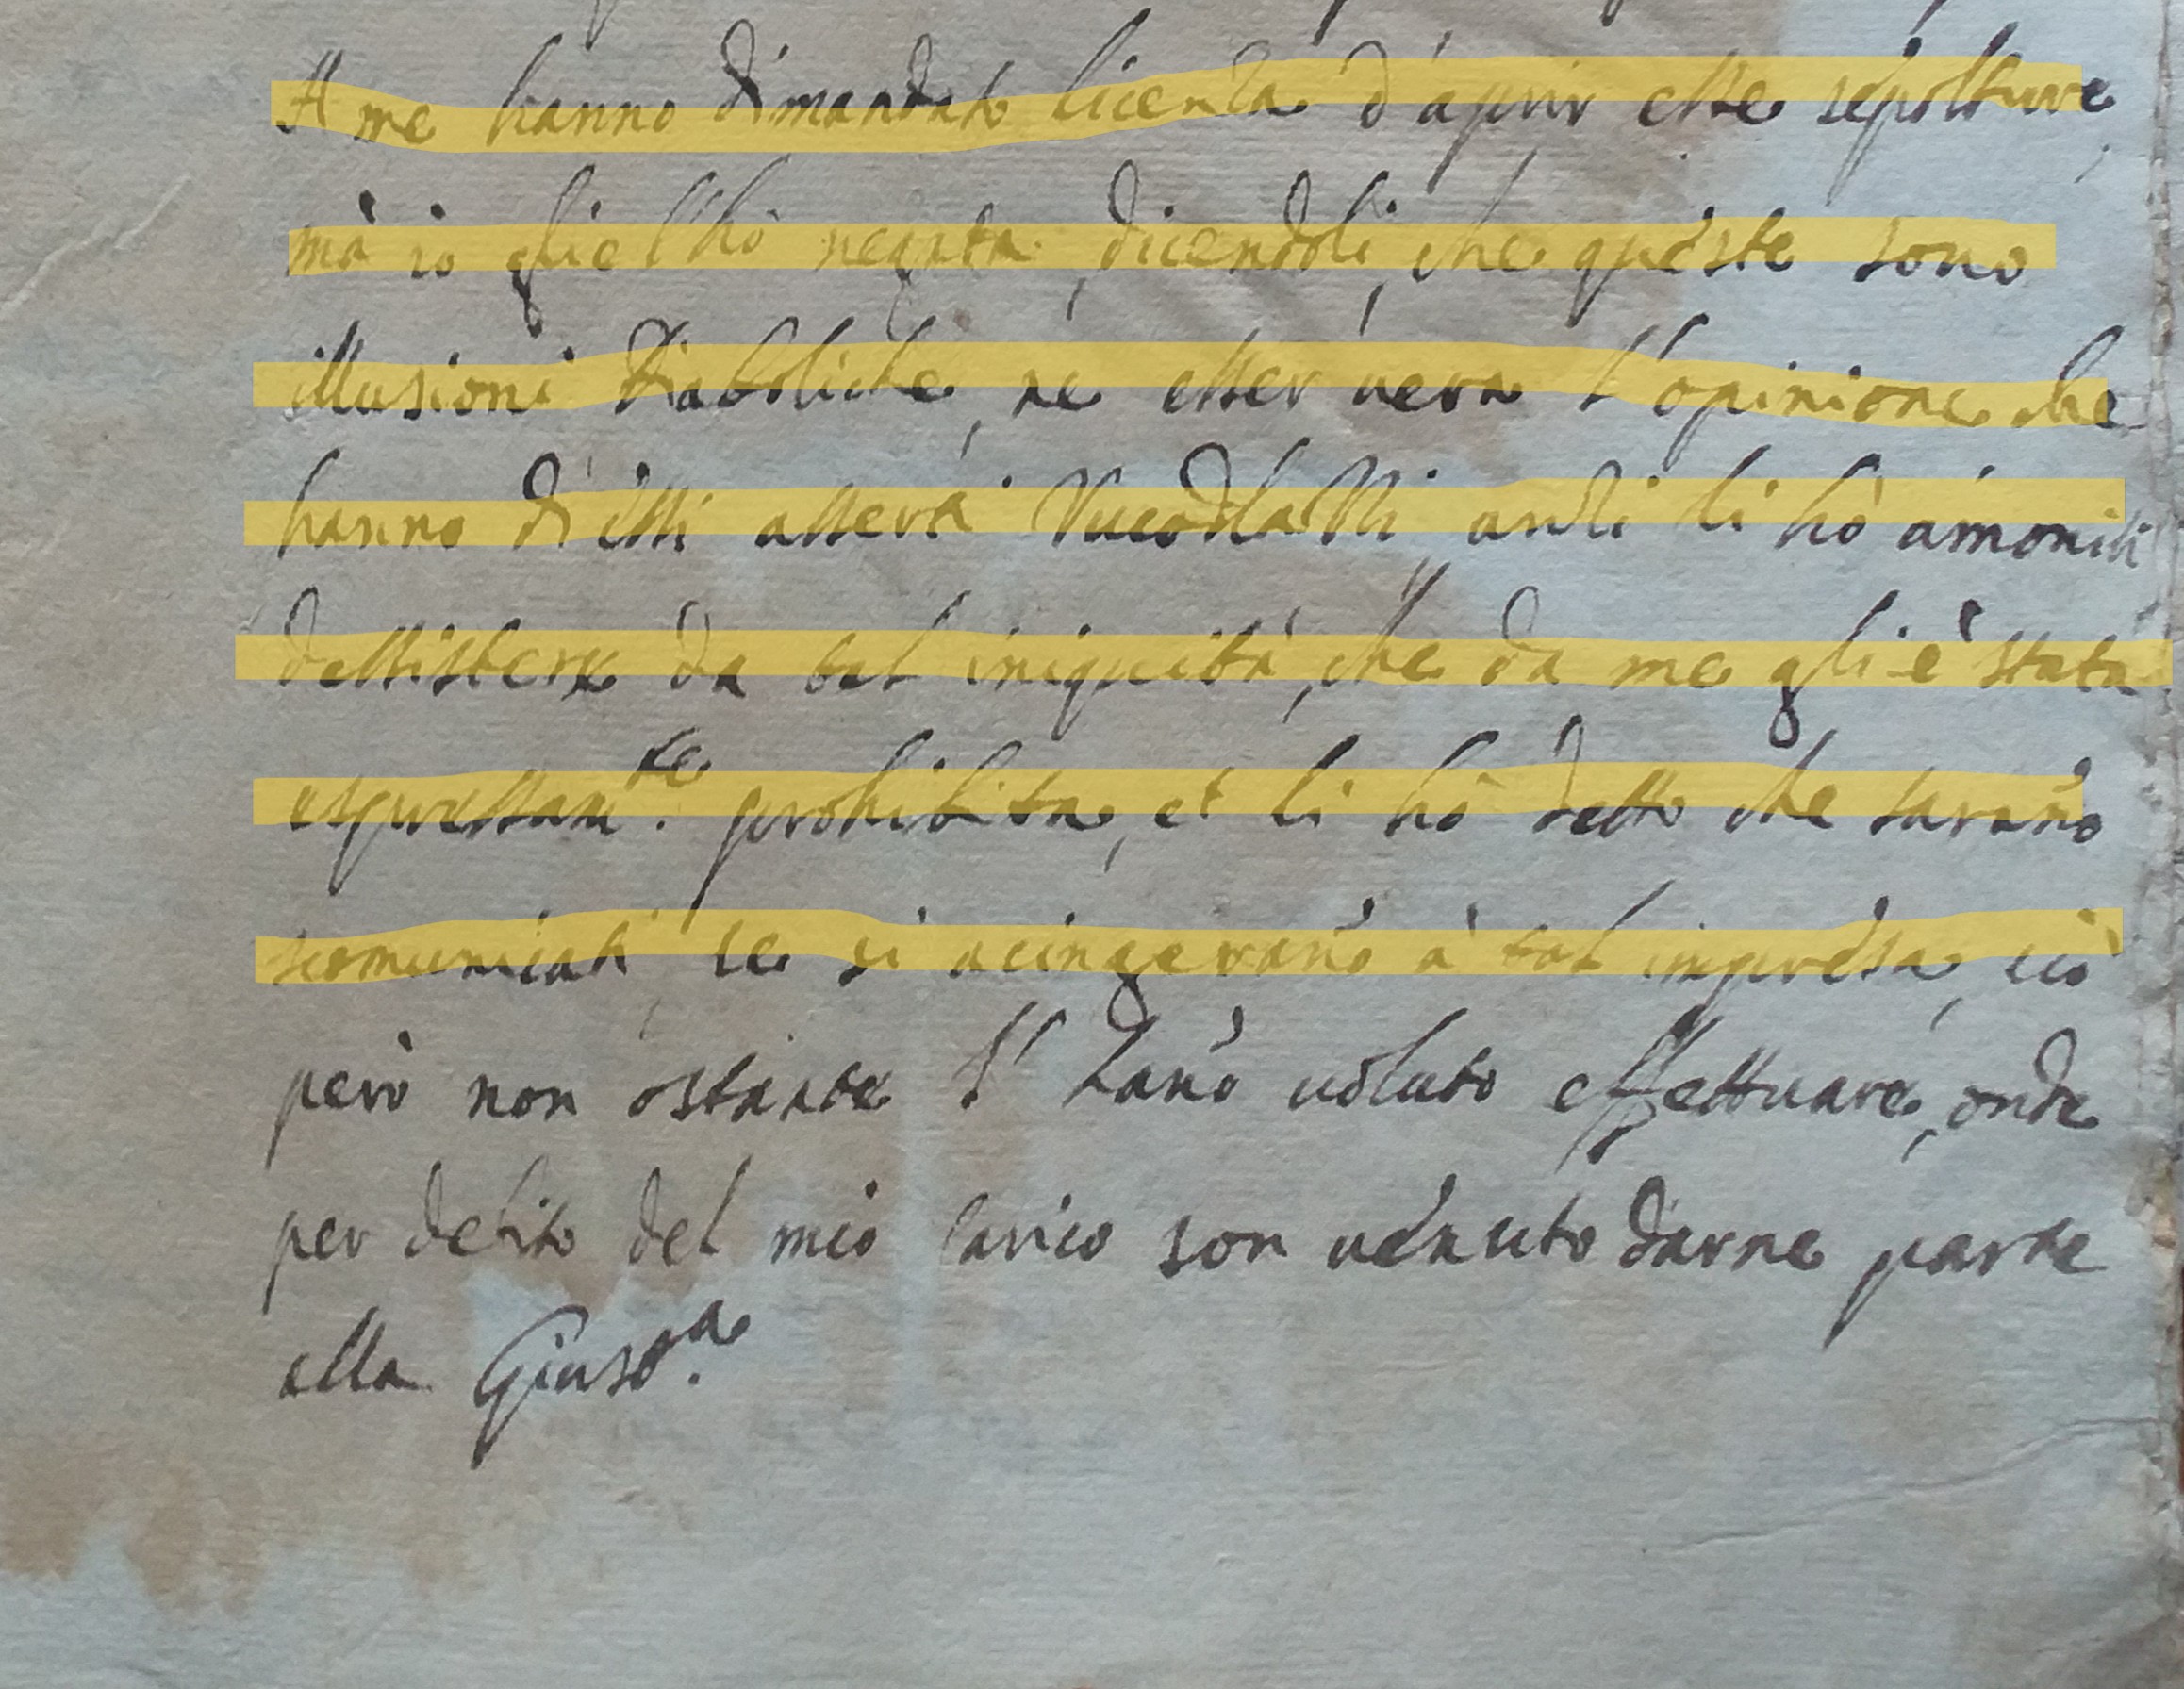 A me hanno dimandato licenza d'aprir esse sepolture,
mà io glie l'hò negata, dicendoli, che queste sono
illusioni Diaboliche, ne esser vera l'opinione che
hanno d'essi esserà li hò amoniti
dessistere da tal iniquità, che da me gli è stata
espressam.te prohibita, et li hò detto che sarano
scomunicati se si acingerano à tal impresa, ciò
però non ostante l' hanò uoluto effettuare, onde
per debito del mio Carico son uenuto darne parte
alla Giust.a